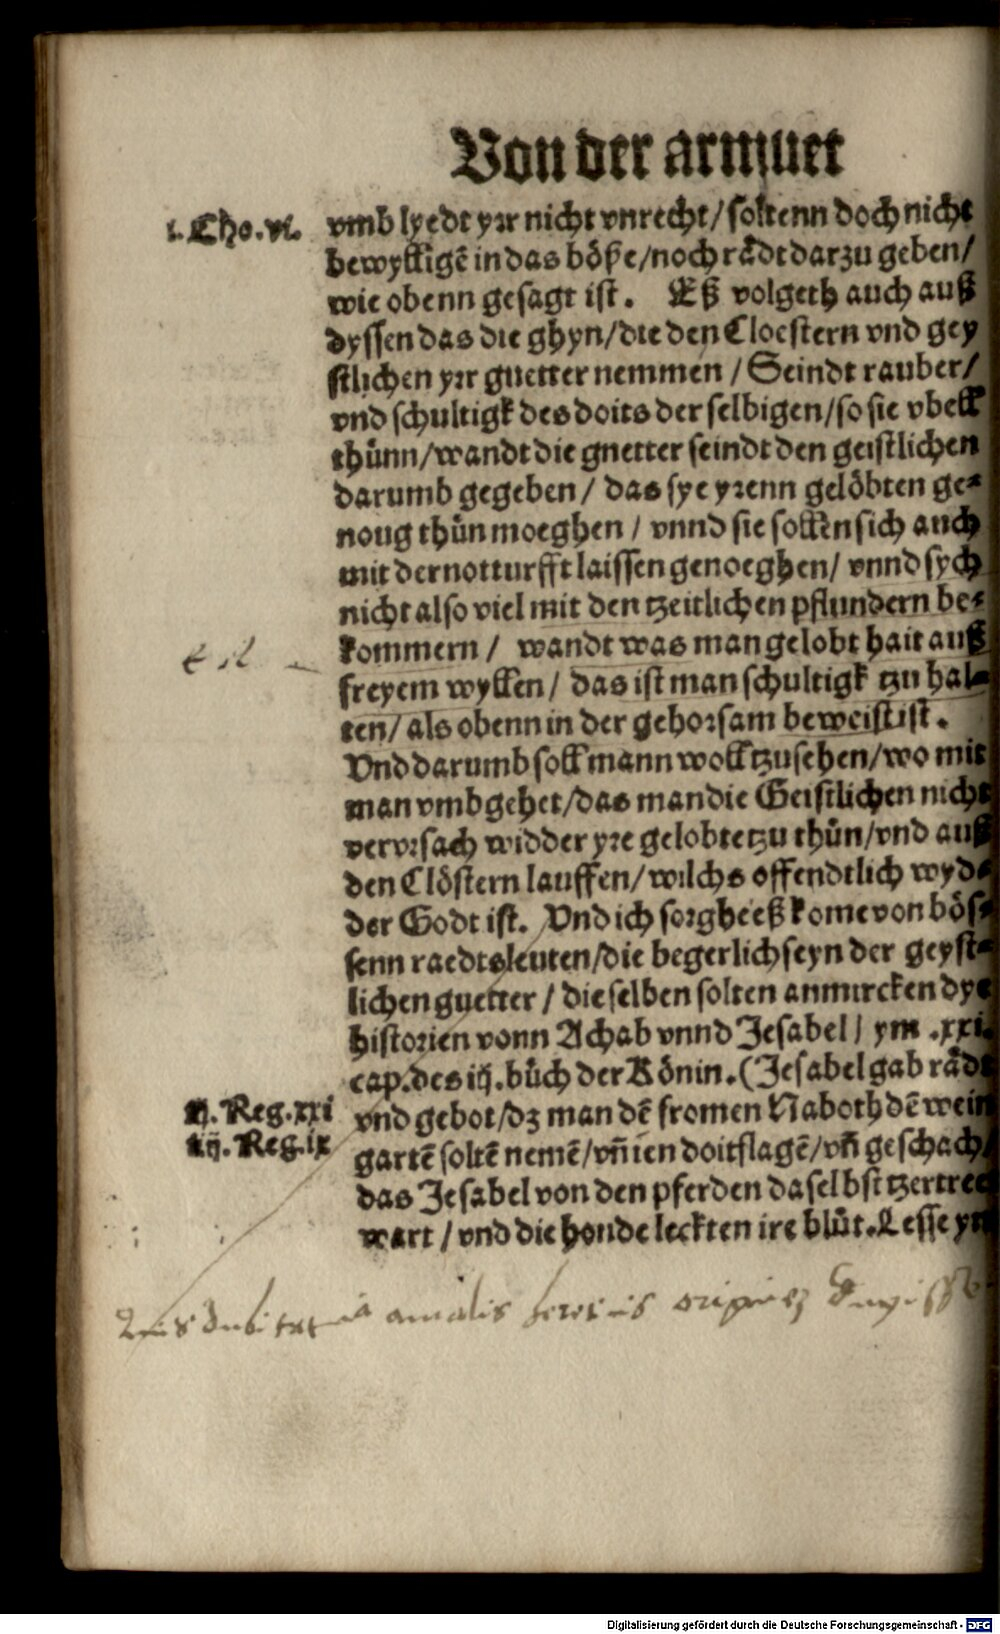 Von der armuet
i. Cho. vi.
vmb lyedt yrr nicht vnrecht/ soltenn doch nicht
bewylligē in das böße/noch rådt darzu geben/
wie obenn gesagt ist. Eß volgeth auch auß
dyssen das die ghyn/die den Cloestern vnd gey
stlichen yrr guetter nemmen / Seindt rauber/
vnd schultigk des doits der selbigen/so sie vbell
thůnn/wandt die gnetter seindt den geistlichen
darumb gegeben / das sye yrenn gelöbten ge-
noug thůn moeghen / vnnd sie sollen sich auch
mit der notturfft laissen genoeghen/ vnnd sych
nicht also viel mit den tzeitlichen pflundern be-
kommern / wandt was man gelobt hait auß
freyem wyllen / das ist man schultigk tzu hal-
ten/ als obenn in der gehorsam beweist ist.
Vnd darumb soll mann woll tzu sehen/wo mit
man vmb gehet/das man die Geistlichen nicht
vervrsach widder yre gelobte tzu thůn/vnd auß
den Clöstern lauffen/wilchs offendtlich wyd-
der Godt ist. Vnd ich sorghe eß kome von bös-
senn raedtsleuten/die begerlich seyn der geyst-
lichen guetter / die selben solten anmircken dye
historien vonn Achab vnnd Jesabel/ ym .xxi.
cap. des iij. bůch der Könin. (Jesabel gab rådt
ij. Reg. xxi
vnd gebot/dz man dē fromen Naboth dē wein
iij. Reg. ix
gartē soltē nemē/vn̄ ien doitslagē/vn̄ geschach/
das Jesabel von den pferden daselbst tzertret
wart / vnd die honde leckten ire blůt. Lesse ym